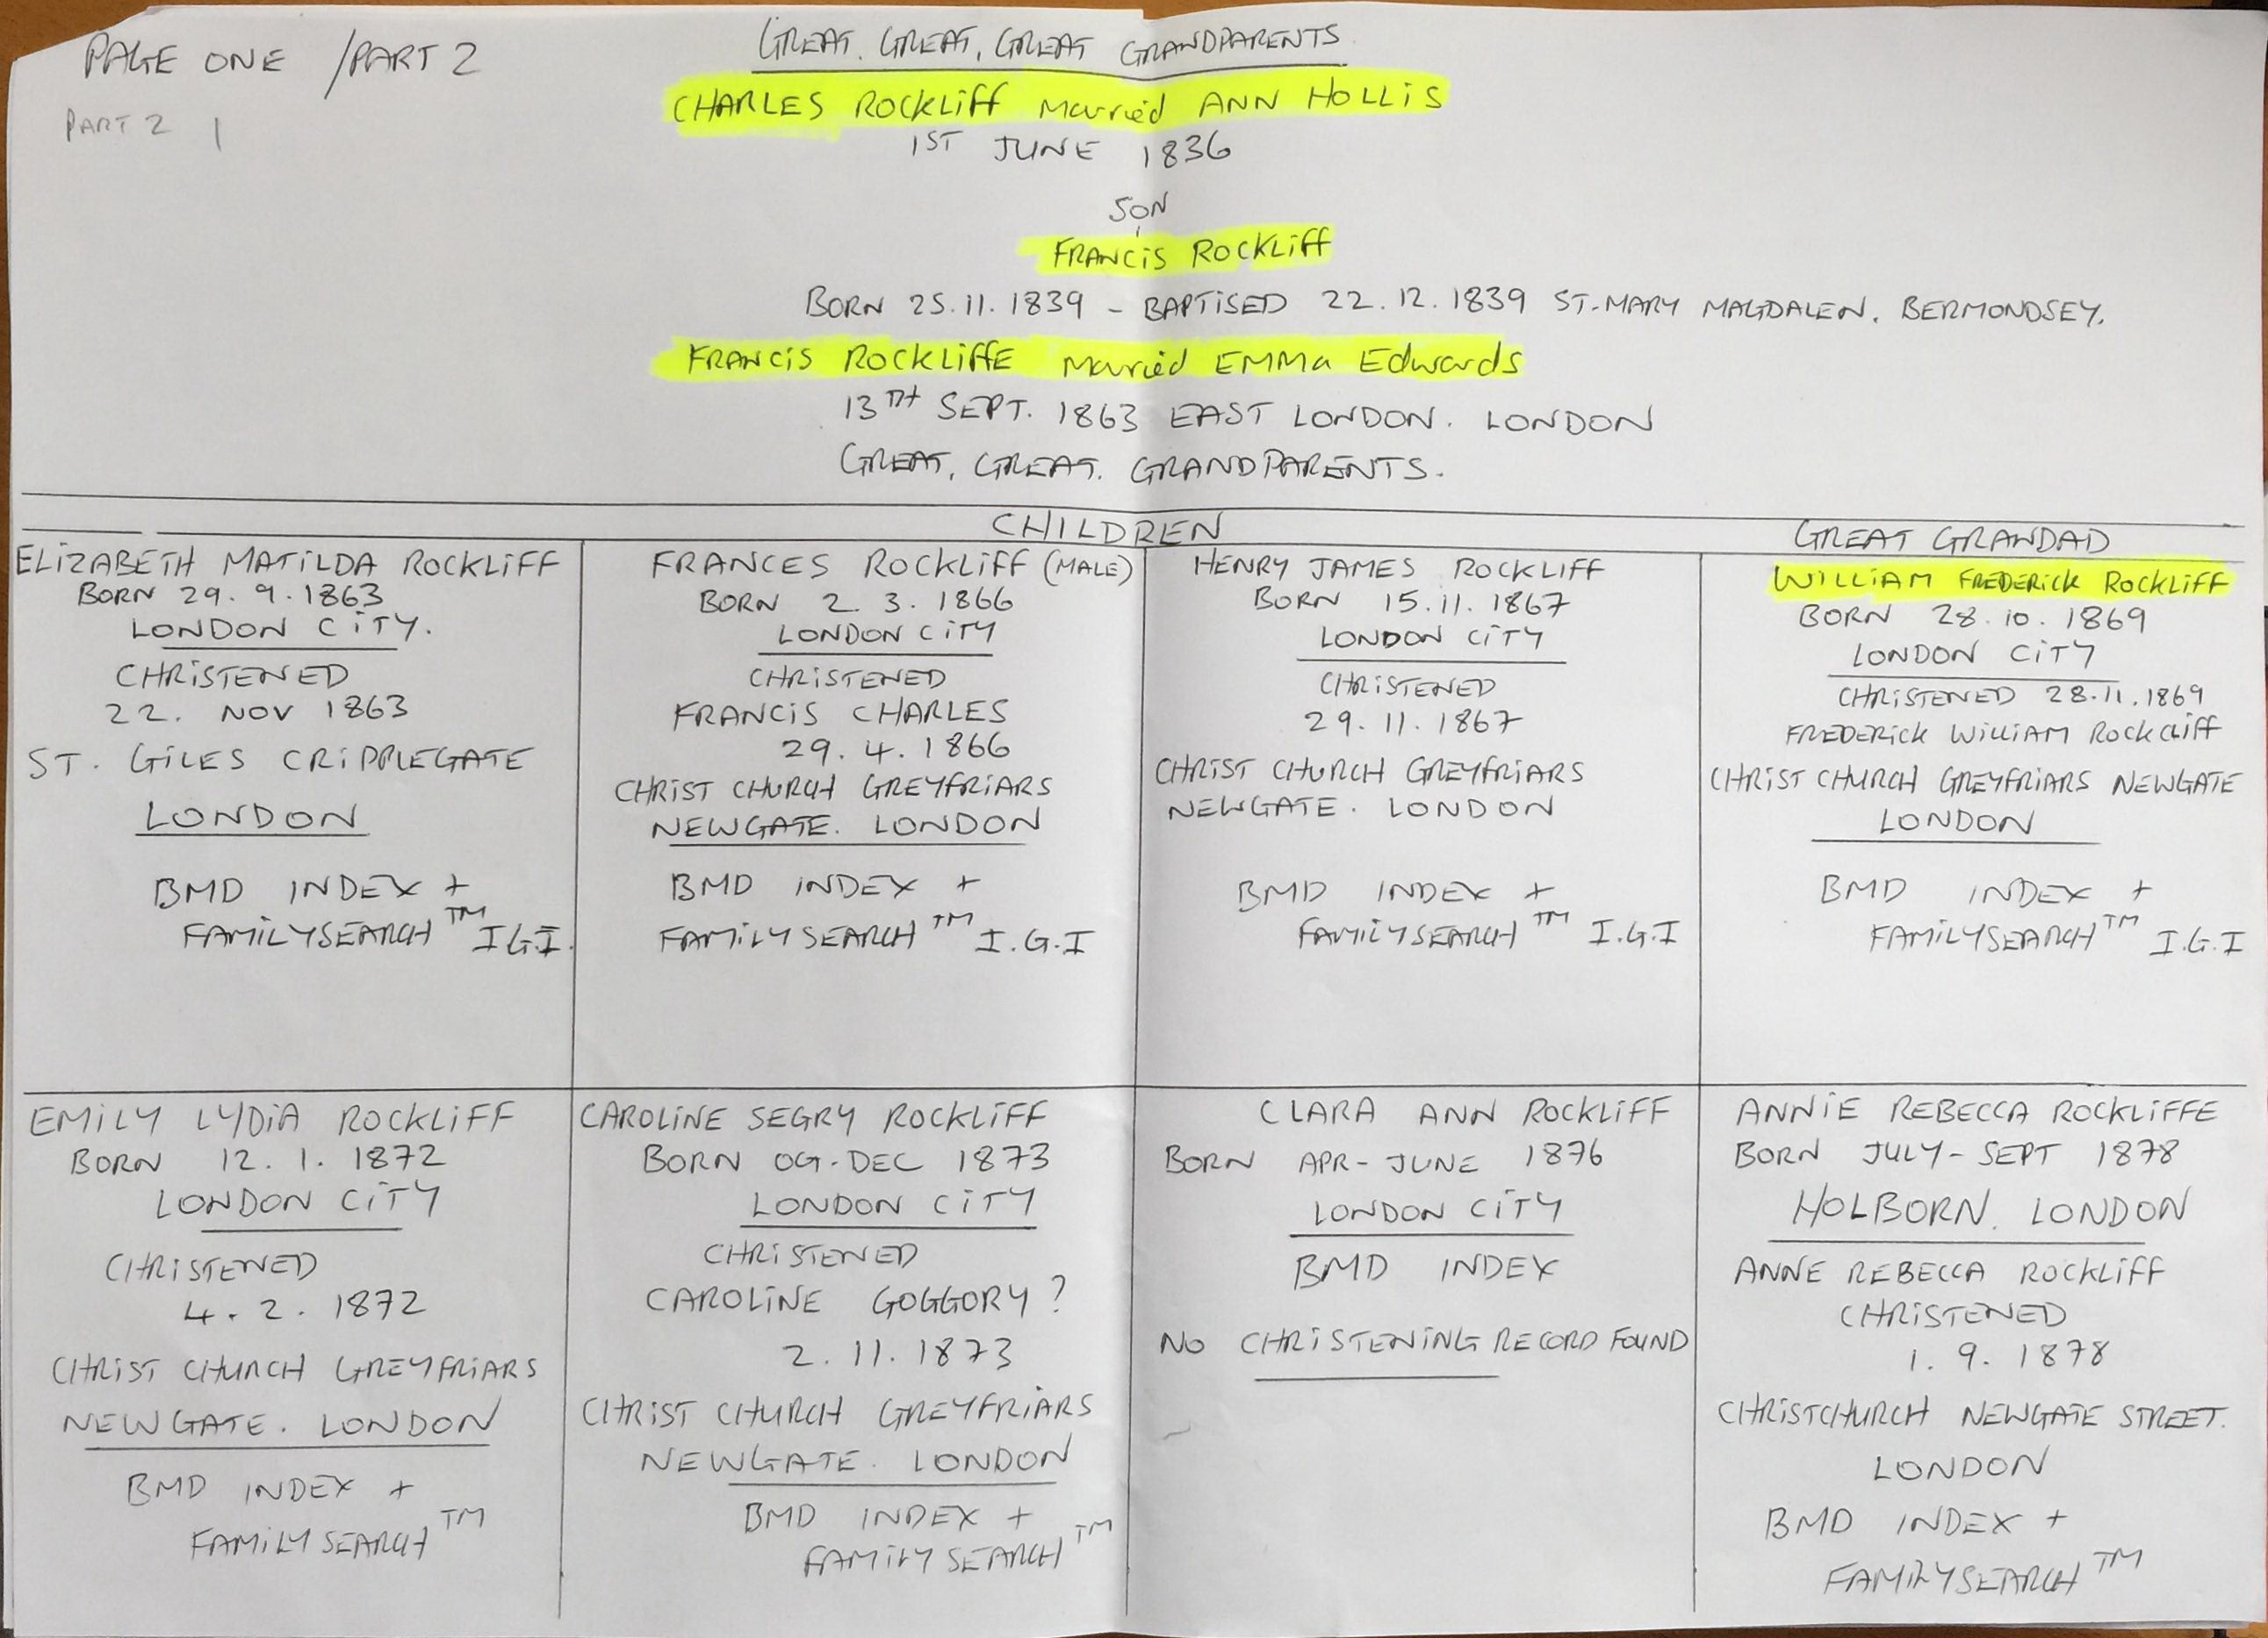 PAGE ONE /PART 2
PART 2 1
GREAT. GREAT, GREAT GRANDPARENTS
CHARLES ROCKLIFF Married ANN HOLLIS
1ST JUNE 1836
SON
FRANCIS ROCKLIFF
BORN 25.11.1839 - BAPTISED 22.12.1839 ST. MARY MAGDALEN. BERMONDSEY.
FRANCIS ROCKLIFFE Married EMMa Edwards
13TH SEPT. 1863 EAST LONDON. LONDON
GREAT, GREAT. GRANDPARENTS.
CHILDREN
ELIZABETH MATILDA ROCKLIFF
BORN 29.9.1863
LONDON CITY.
CHRISTENED
22. NOV 1863
ST. GILES CRIPPLEGATE
LONDON
BMD INDEX +
FAMILYSEARCH™ I.G.I.
FRANCES ROCKLIFF (MALE)
BORN 2.3.1866
LONDON CITY
CHRISTENED
FRANCIS CHARLES
29.4.1866
CHRIST CHURCH GREYFRIARS
NEWGATE. LONDON
BMD INDEX +
FAMILYSEARCH™ I.G.I
HENRY JAMES ROCKLIFF
BORN 15.11.1867
LONDON CITY
CHRISTENED
29.11.1867
CHRIST CHURCH GREYFRIARS
NEWGATE. LONDON
BMD INDEX +
FAMILYSEARCH™ I.G.I
GREAT GRANDAD
WILLIAM FREDERICK ROCKLIFF
BORN 28.10.1869
LONDON CITY
CHRISTENED 28.11.1869
FREDERICK WILLIAM ROCKCLIFF
CHRIST CHURCH GREYFRIARS NEWGATE
LONDON
BMD INDEX +
FAMILYSEARCH™ I.G.I
EMILY LYDIA ROCKLIFF
BORN 12.1.1872
LONDON CITY
CHRISTENED
4.2.1872
CHRIST CHURCH GREYFRIARS
NEWGATE. LONDON
BMD INDEX +
FAMILYSEARCH™
CAROLINE SEGRY ROCKLIFF
BORN OCT-DEC 1873
LONDON CITY
CHRISTENED
CAROLINE GOGGORY?
2.11.1873
CHRIST CHURCH GREYFRIARS
NEWGATE. LONDON
BMD INDEX +
FAMILYSEARCH™
CLARA ANN ROCKLIFF
BORN APR-JUNE 1876
LONDON CITY
BMD INDEX
NO CHRISTENING RECORD FOUND
ANNIE REBECCA ROCKLIFFE
BORN JULY-SEPT 1878
HOLBORN. LONDON
ANNE REBECCA ROCKLIFF
CHRISTENED
1.9.1878
CHRISTCHURCH NEWGATE STREET.
LONDON
BMD INDEX +
FAMILYSEARCH™